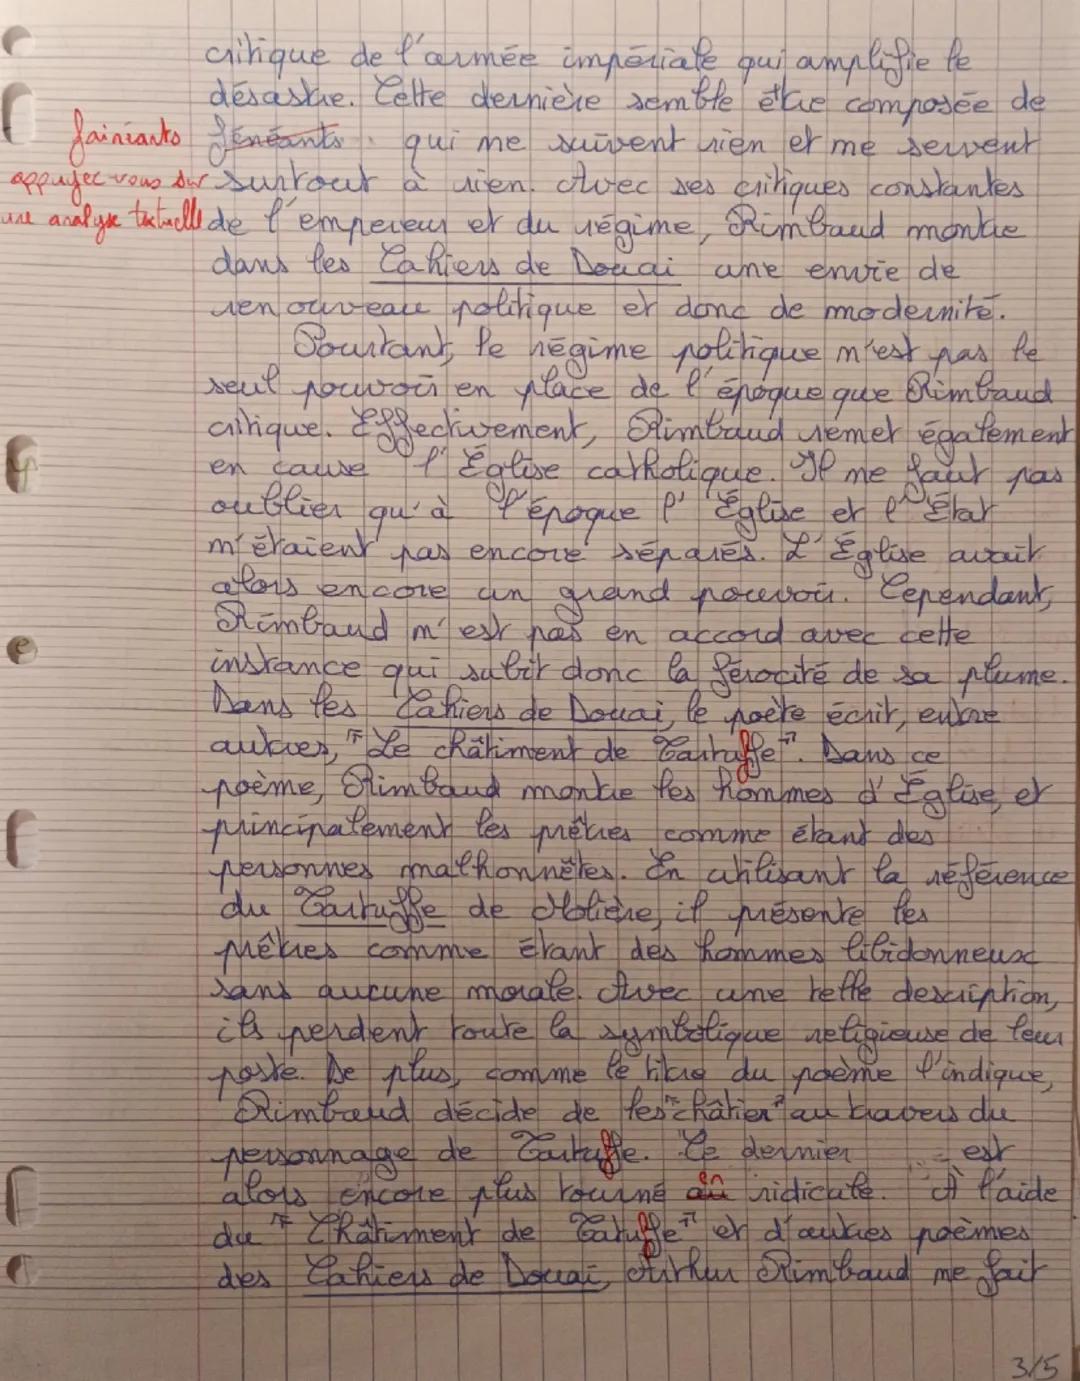 critique de l'armée impériale qui amplifie le
désastre. Cette dernière semble être composée de
fainéants fénéants qui ne suivent rien et ne servent
appuyez-vous sur surtout à rien. Avec ses critiques constantes
une analyse textuelle de l'empereur et du régime, Rimbaud montre
dans les Cahiers de Douai une envie de
renouveau politique et donc de modernité.
Pourtant, le régime politique n'est pas le
seul pouvoir en place de l'époque que Rimbaud
critique. Effectivement, Rimbaud remet également
en cause l'Église catholique. Il ne faut pas
oublier qu'à l'époque l'Église et l'État
n'étaient pas encore séparés. L'Église avait
alors encore un grand pouvoir. Cependant,
Rimbaud n'est pas en accord avec cette
instance qui subit donc la férocité de sa plume.
Dans les Cahiers de Douai, le poète écrit, entre
autres, "Le châtiment de Tartuffe". Dans ce
poème, Rimbaud montre les hommes d'Église, et
principalement les prêtres comme étant des
personnes malhonnêtes. En utilisant la référence
du Tartuffe de Molière, il présente les
prêtres comme étant des hommes libidonneux
sans aucune morale. Avec une telle description,
ils perdent toute la symbolique religieuse de leur
poste. De plus, comme le titre du poème l'indique,
Rimbaud décide de les "châtier" au travers du
personnage de Tartuffe. Ce dernier est
alors encore plus tourné au en ridicule. À l'aide
du "Châtiment de Tatuffe" et d'autres poèmes
des Cahiers de Douai, Arthur Rimbaud ne fait
3/5